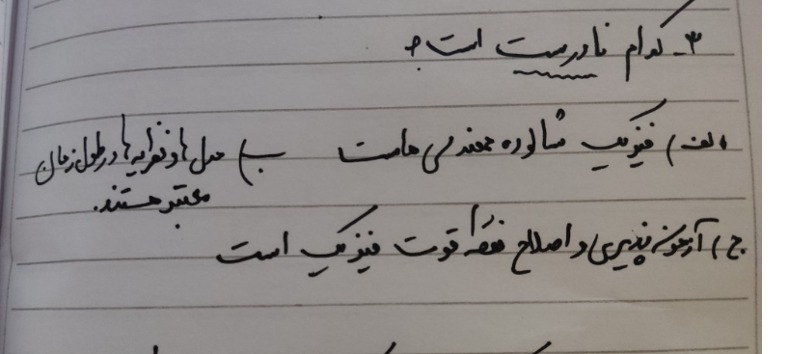 ۳- کدام نادرست است؟
الف) فیزیک شالوده مهندسی هاست ب) مدل ها و نظریه ها در طول زمان
معتبر هستند.
ج) آزمون پذیری و اصلاح نقطه قوت فیزیک است